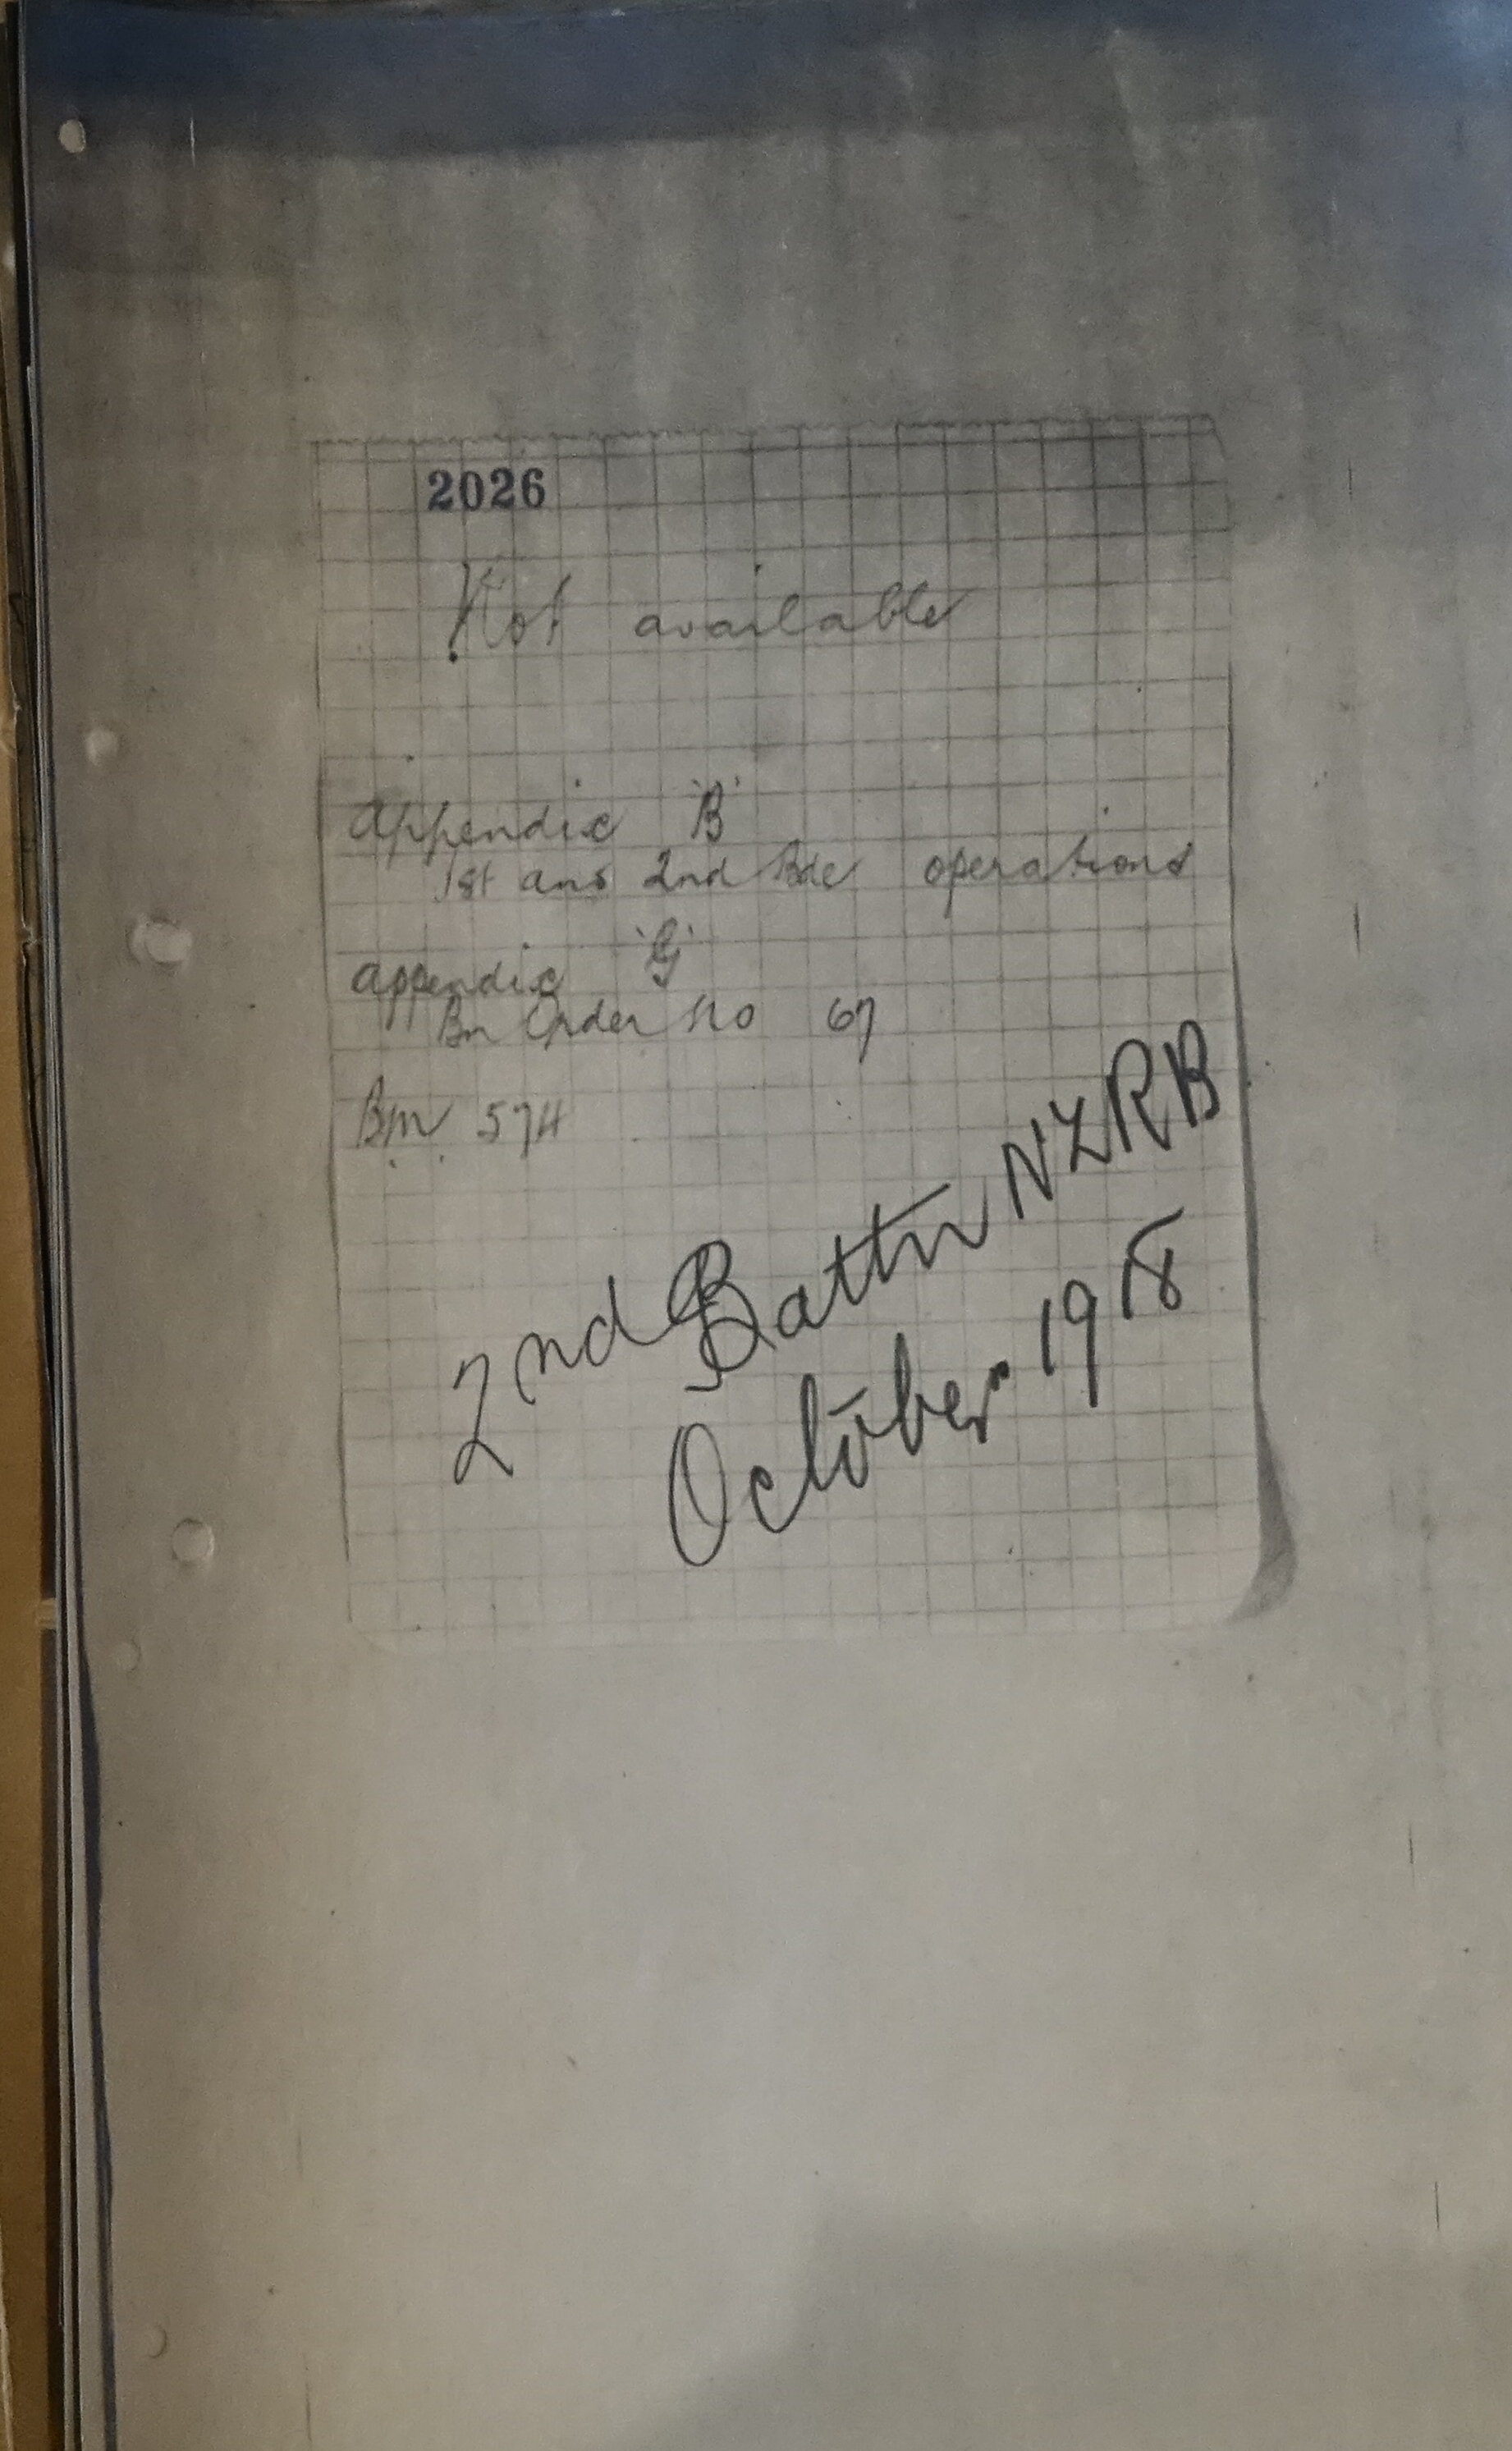 2026
Not available
Appendix 'B'
1st and 2nd Bde operations
Appendix 'G'
Bn Order No 67
BM 574
2nd Battn NZRB
October 1918